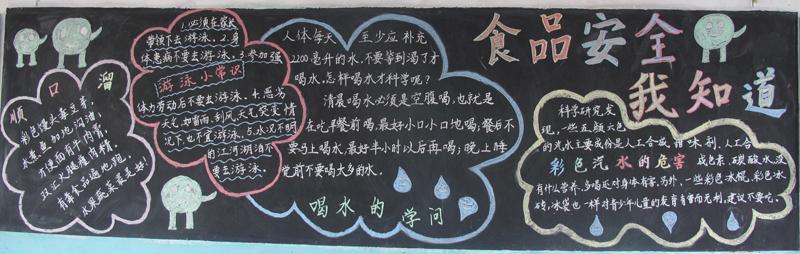 食品安全
我知道
顺口溜
彩色馒头毒豆芽,
水煮鱼加地沟油,
方便面有牛肉膏,
双汇火腿瘦肉精,
有毒食品遍地现,
瓜果蔬菜是最好!
1.必须在家长
带领下去游泳。2.身
体患病不要去游泳。3.参加强
游泳小常识
体力劳动后不要去游泳。4.恶劣
天气如雷雨、刮风天气突变情
况下,也不宜游泳。5.水况不明
的江河湖泊不
要去游泳。
人体每天 至少应补充
2200毫升的水。不要等到渴了才
喝水,怎样喝水才科学呢?
清晨喝水必须是空腹喝,也就是
在吃早餐前喝,最好小口小口地喝;餐后不
要马上喝水,最好半小时以后再喝;晚上睡
觉前不要喝太多的水。
喝水的学问
科学研究发
现,一些五颜六色
的汽水主要成份是人工合成甜味剂、人工合
彩色汽水的危害
成色素、碳酸水,没
有什么营养,多喝还对身体有害,另外,一些彩色冰棍、彩色冰
砖、冰袋也一样对青少年儿童的发育有害而无利,建议不要吃。